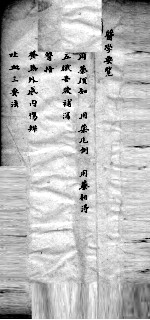 醫學要覽
用藥須知 用藥凡例 用藥相得
五臟苦欲補瀉
醫緒
養馬外感內傷辨
吐血三要法